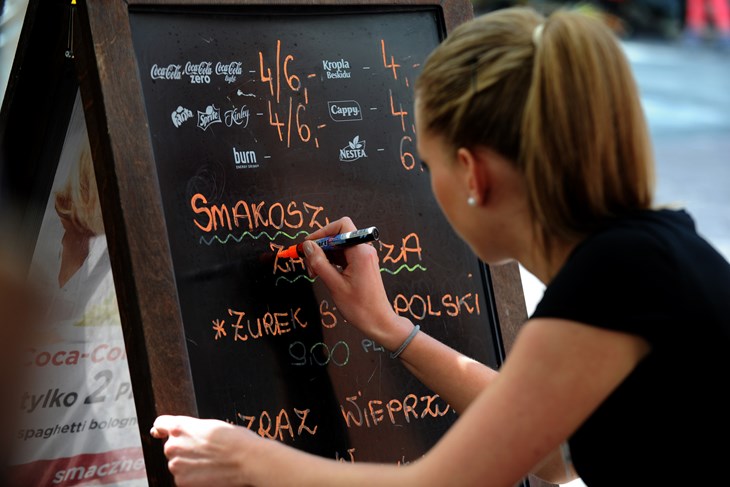 Coca-Cola Coca-Cola zero Coca-Cola light - 4/6,- Kropla Beskidu - 4,-
Fanta Sprite Kinley - 4/6,- Cappy - 4
burn - NESTEA - 6
SMAKOSZ
ZA ZA
*ŻUREK S POLSKI
9,00
ZRAZ WIEPRZ
Coca-Co
tylko 2
spaghetti bologn
smaczne